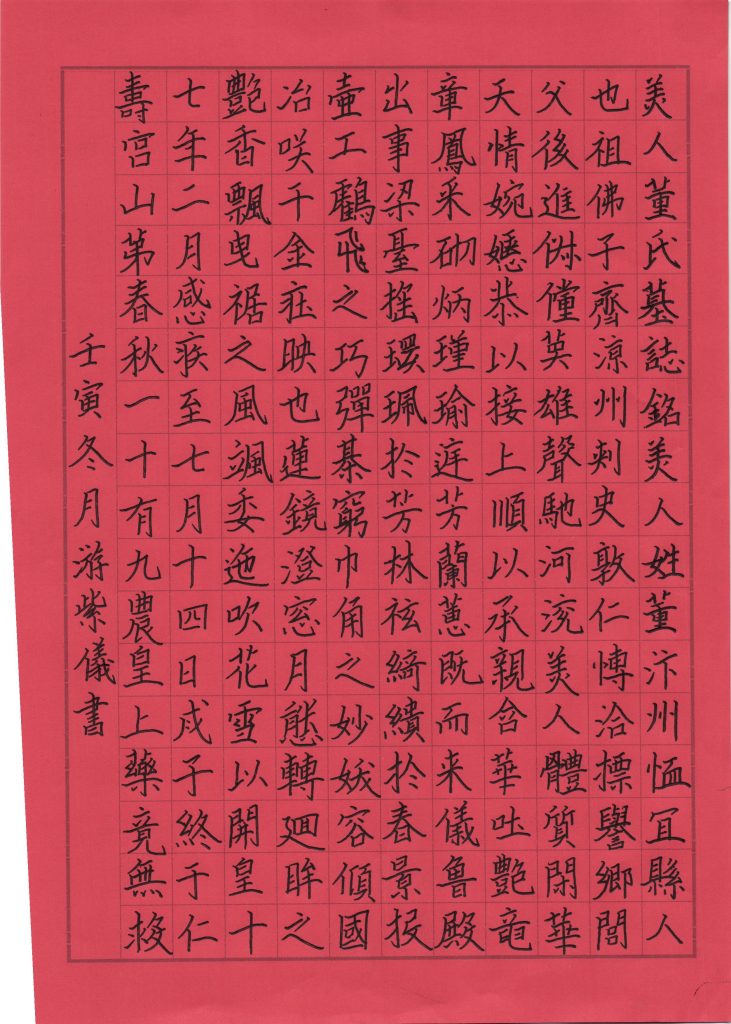 美人董氏墓誌銘美人姓董汴州恤宜縣人
也祖佛子齊涼州刺史敦仁博洽摽譽鄉閭
父後進俶儻英雄聲馳河渷美人體質閑華
天情婉嫕恭以接上順以承親含華吐艷龍
章鳳采砌炳瑾瑜庭芳蘭蕙既而来儀魯殿
出事梁臺搖環珮於芳林袨綺繢於春景投
壷工鶴飛之巧彈棊窮巾角之妙妖容傾國
冶咲千金莊映也蓮鏡澄窓月態轉廻眸之
艷香飄曳裾之風颯委迤吹花雪以開皇十
七年二月感疾至七月十四日戍子終于仁
壽宫山第春秋一十有九農皇上藥竟無救
壬寅冬月游紫儀書